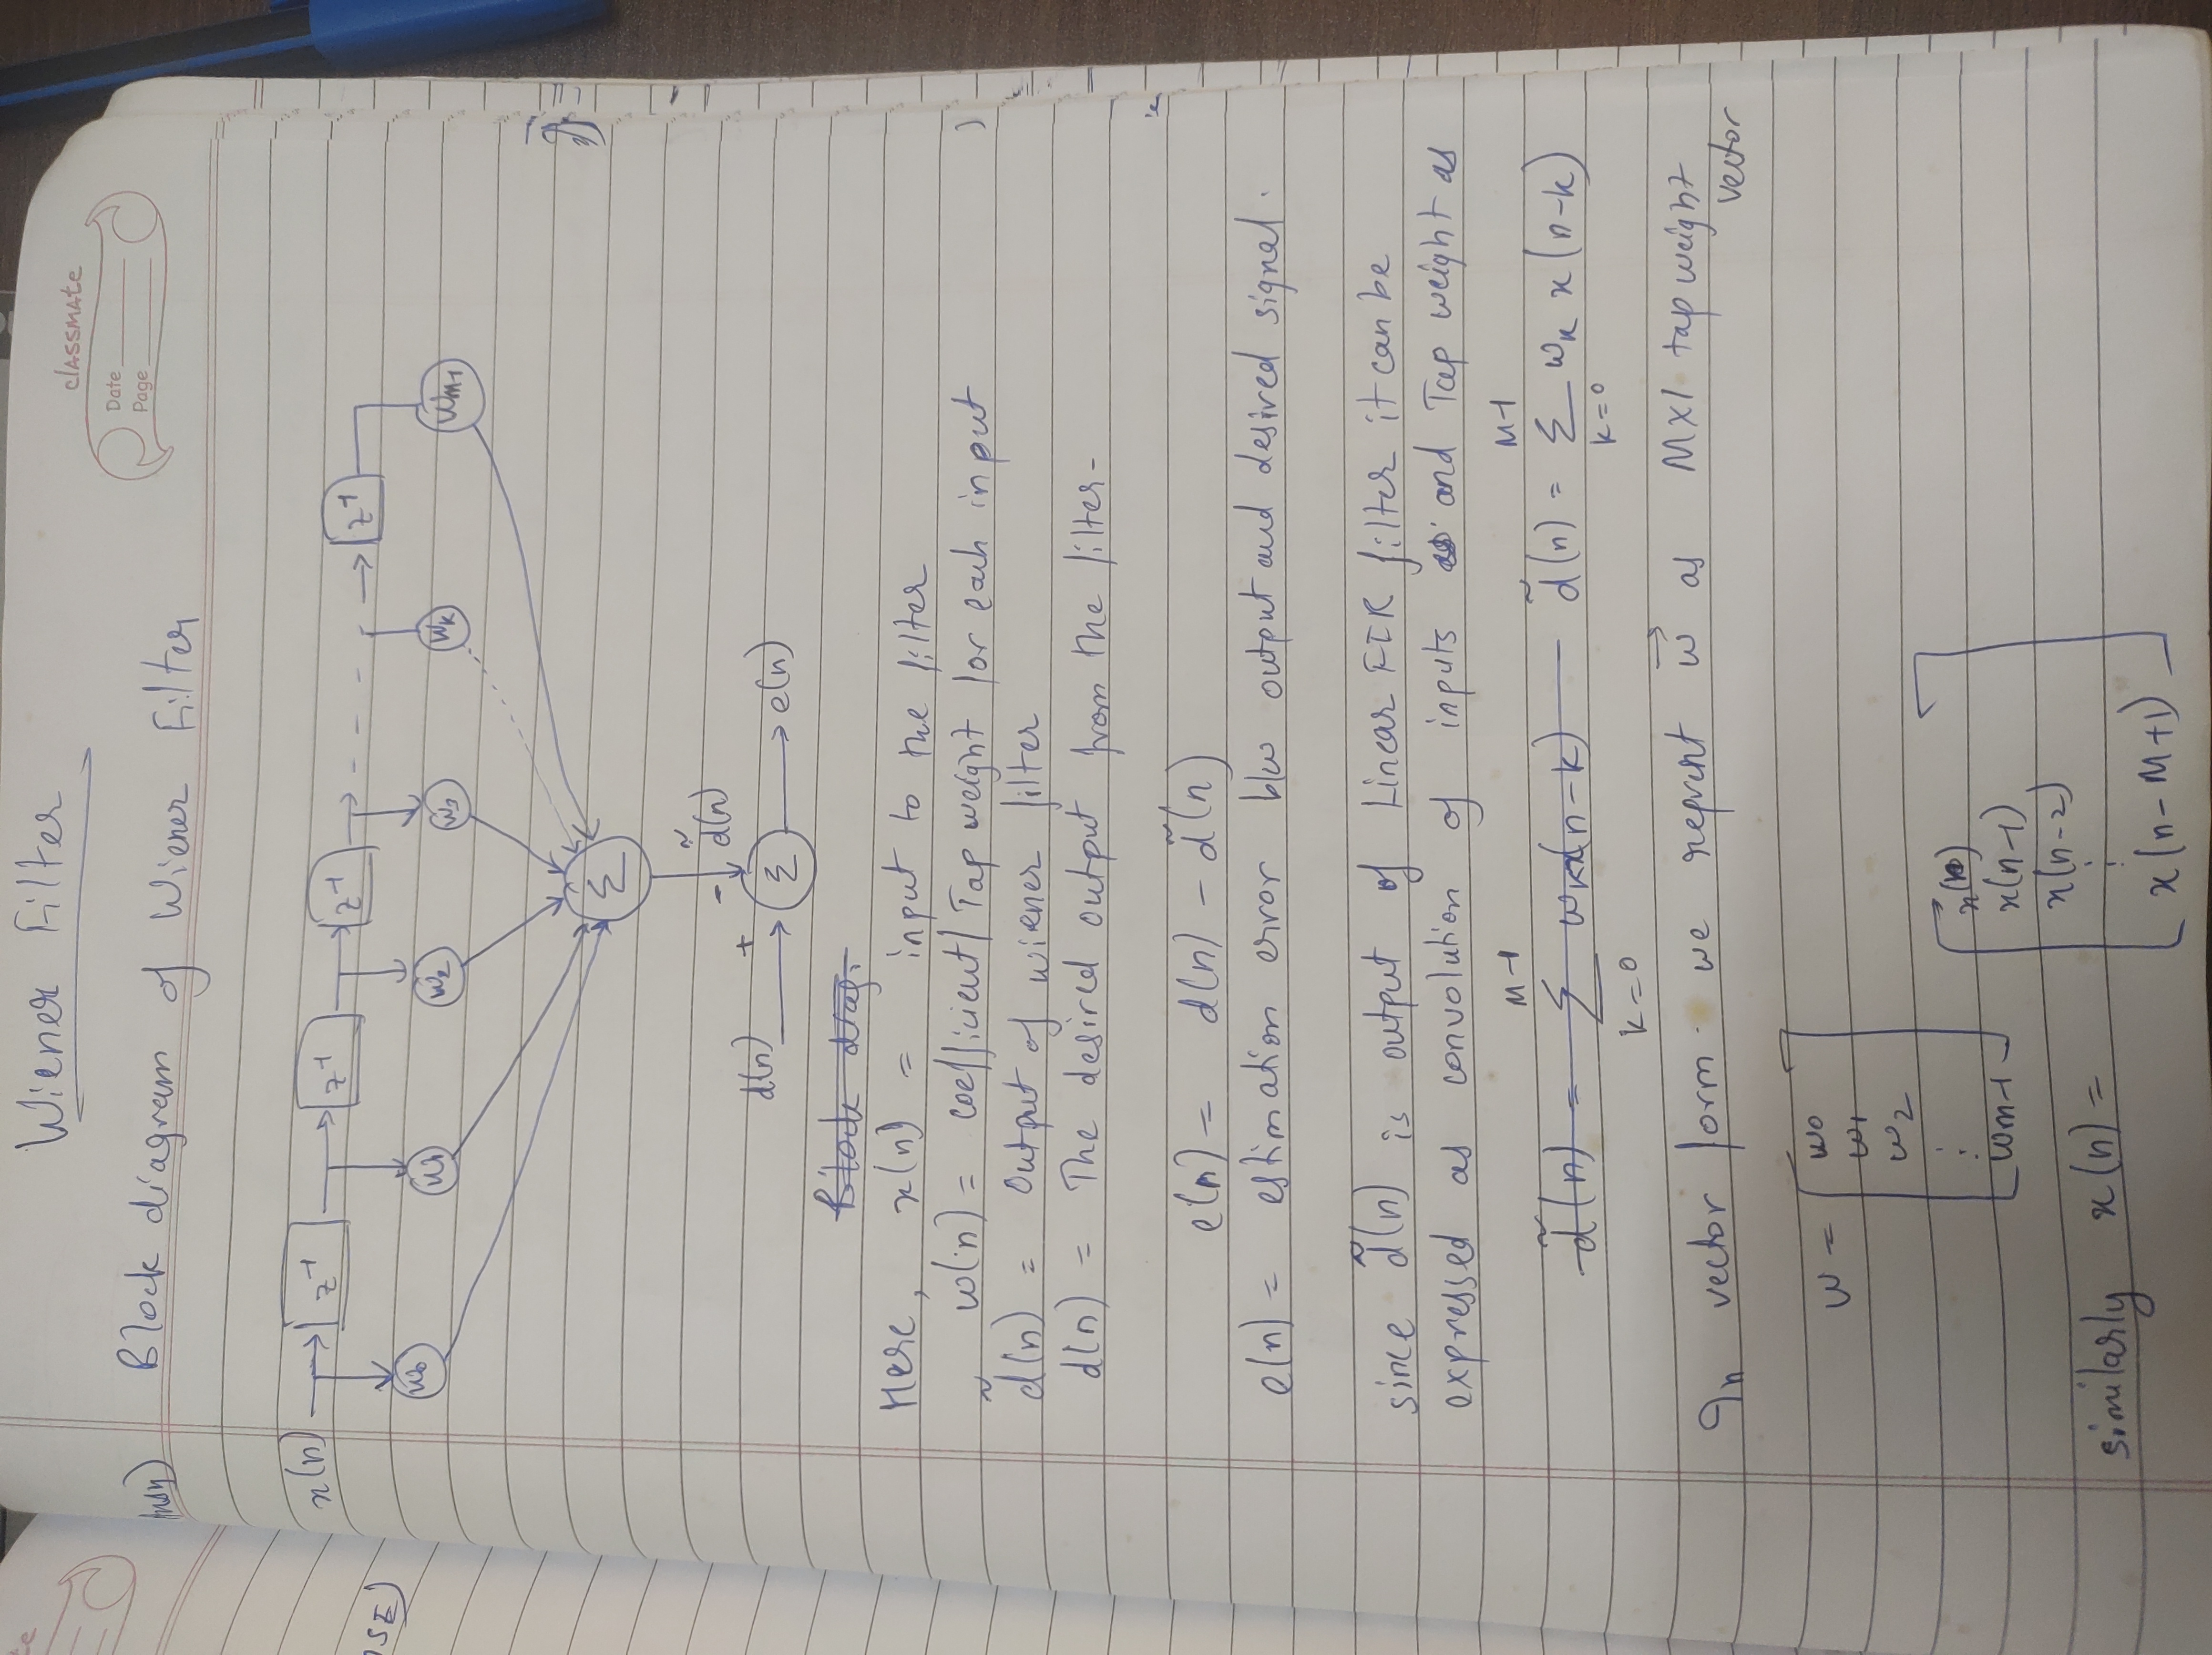 Wiener Filter
classmate
Date
Page
Block diagram of Wiener Filter
x(n) z⁻¹ z⁻¹ z⁻¹ - - - - z⁻¹
OSE)
w₀ w₁ w₂ w₃ wₖ wₘ₋₁
Σ
- d̃(n)
d(n) + Σ e(n)
Here, x(n) = input to the filter
w(n) = coefficient/Tap weight for each input
d̃(n) = Output of wiener filter
d(n) = The desired output from the filter-
e(n) = d(n) - d̃(n)
e(n) = estimation error b/w output and desired signal.
since d̃(n) is output of Linear FIR filter it can be
expressed as convolution of inputs and Tap weight as
M-1 M-1
d̃(n) = Σ wₖx(n-k) d̃(n) = Σ wₖ x(n-k)
k=0 k=0
In vector form we reprent w⃗ as MX1 tap weight
vector
w = w₀
w₁
w₂
⋮
wₘ₋₁
x(n)
x(n-1)
x(n-2)
similarly x(n) =
⋮
x(n-M+1)